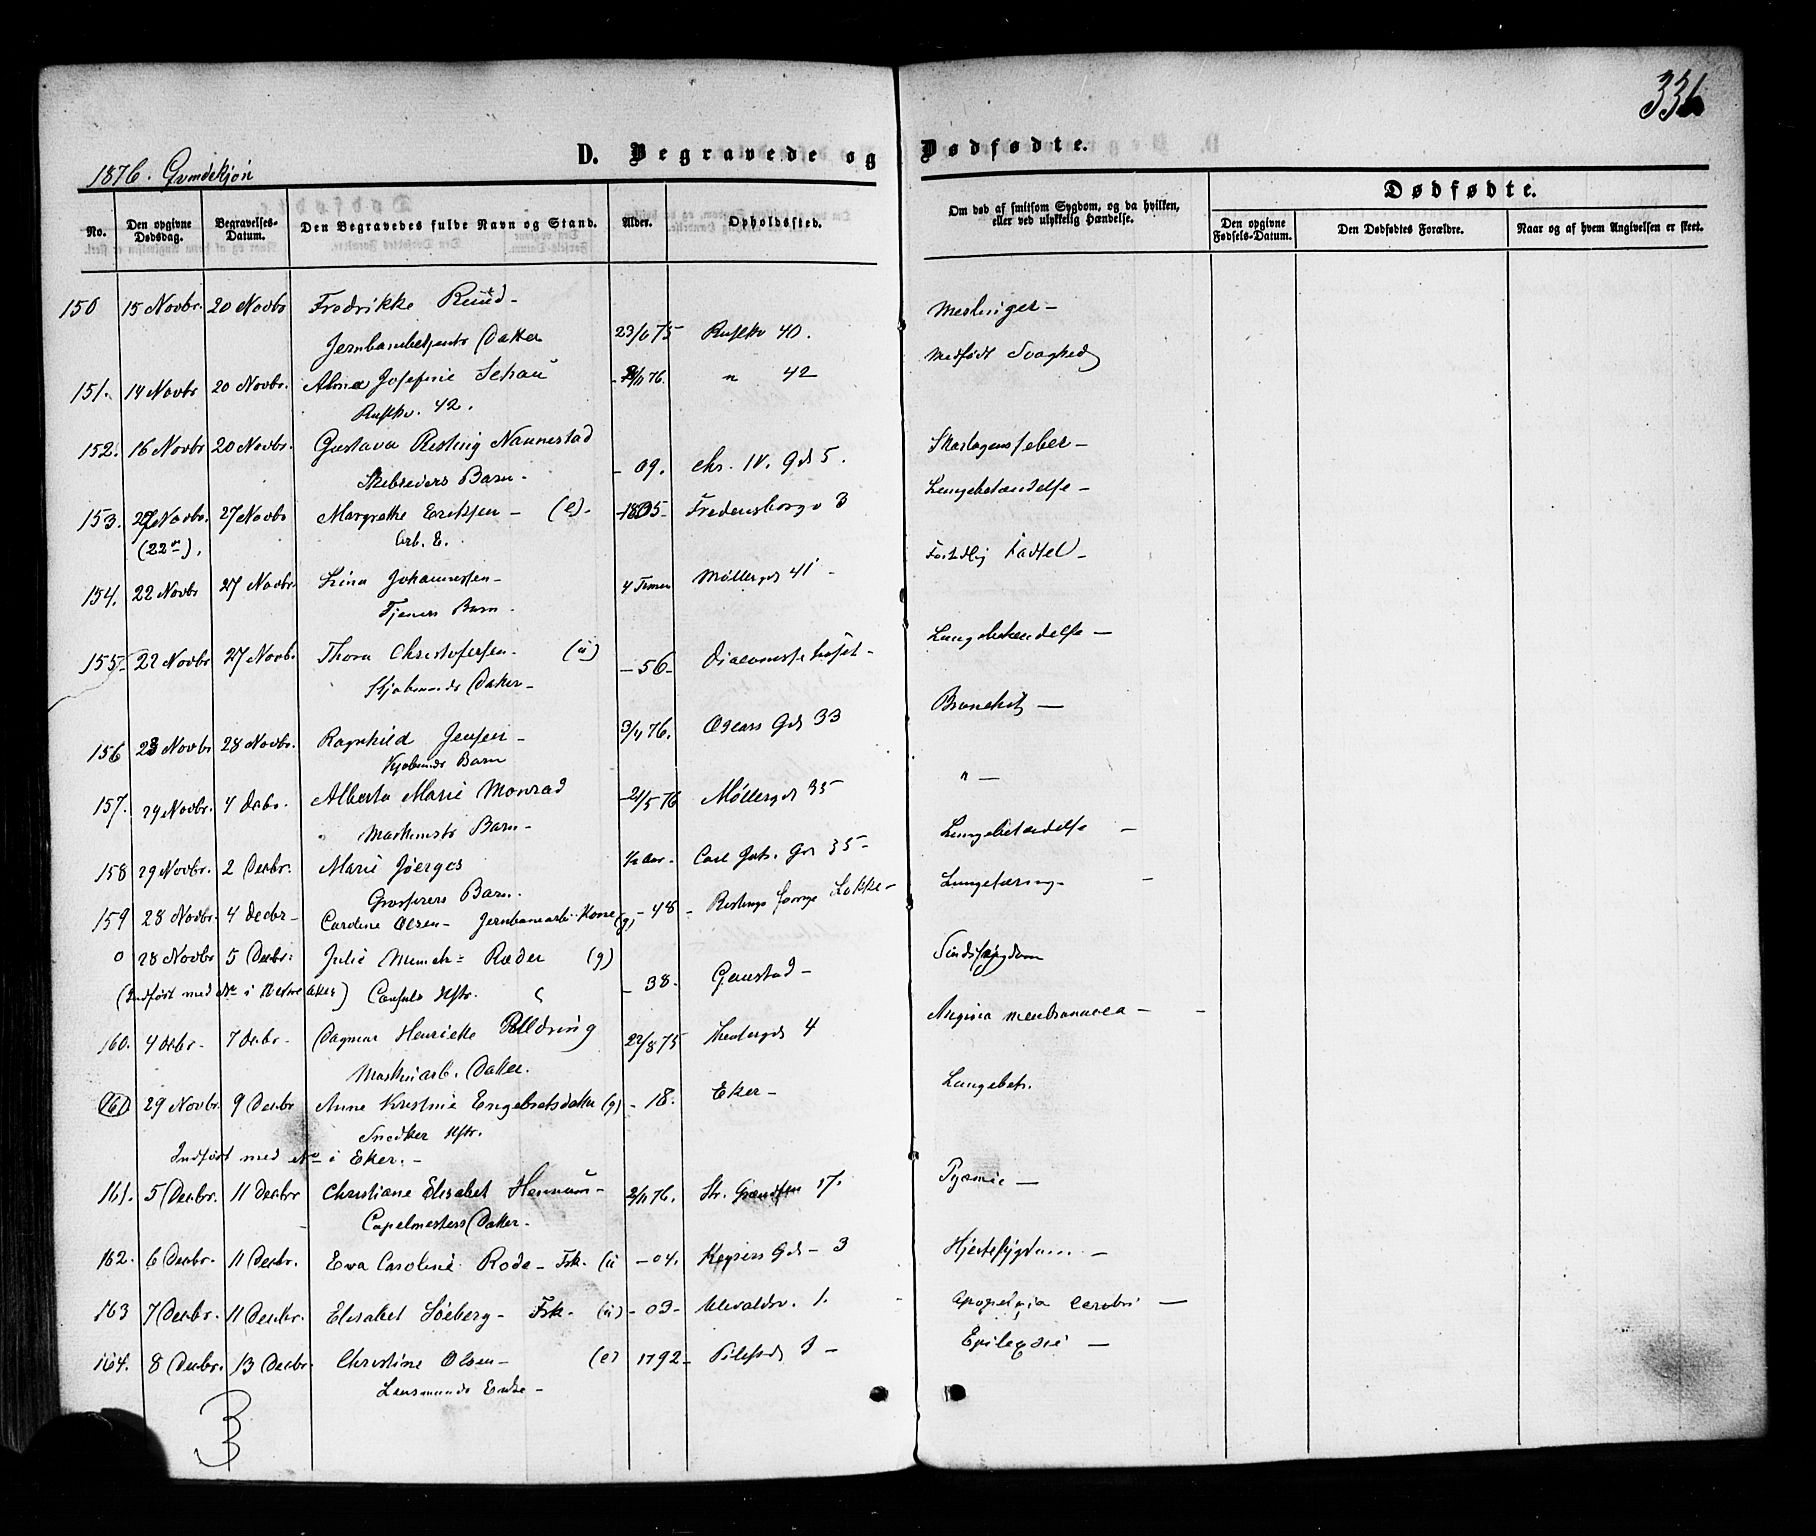 336
D. Begravede og Dødfødte.
1876. Qvindekjøn
No. Den opgivne Dødsdag. Begravelses-Datum. Den Begravedes fulde Navn og Stand. Alder. Opholdssted. Om død af smitsom Sygdom, og da hvilken, eller ved ulykkelig Hændelse. Dødfødte.
Den opgivne Fødsels-Datum. Den Dødfødtes Forældre. Naar og af hvem Angivelsen er skeet.
150 15 Novbr. 20 Novbr Fredrikke Ruud - Meslinger -
Jernbanebetjents Datter 23/6 75 Rusløkv 40.
151. 14 Novbr 20 Novbr. Alma Josefine Schau /11 76. " 42 Medfødt Svaghed
Rusløkv. 42.
152. 16 Novbr 20 Novbr. Gustava Resting Nannestad Skarlagensfeber -
Barn - - 09. Chr. IV. Gd 5.
153. Novbr. 27 Novbr Margrethe Eriksen - (e). - 1805 - Fredensborgv 3 Lungebetændelse -
(22de). Arb. E.
154. 22 Novbr 27 Novbr. Lina Johannesen - 4 Timer Møllergd 41 - Fortidlig Fødsel -
Tjeners Barn.
155 - 22 Novbr 27 Novbr. Thora Christofersen - (u) - 56 - Diaconissehuset - Lungebetændelse -
Datter -
156 23 Novbr 28 Novbr. Ragnhild Jensen - 3/4 76. Oscars Gd 33 Bronchit -
Barn
157. 29 Novbr. 4 Decbr. Alberta Marie Monrad - 21/5 76 Møllergd 35 " -
Maskinists Barn -
158 29 Novbr. 2 Decbr. Marie Joerges ½ Aar - Carl Joh. Gd 35 - Lungebetændelse -
Grosserers Barn.
159 28 Novbr. 4 Decbr - Caroline Olsen - Jernbanearb. Kone (g) - 48 - Løkke - Lungetæring - -
0 28 Novbr 5 Decbr. Julie Munch - Ræder (g) Sindssygdom
(Indført med No i Vestre Aker) Consuls Hstr. - 38. Gaustad -
160. 4 Decbr - 7 Decbr - Dagmar Henriette Poldring 22/8 75 Theatergd 4 Angina membranacea - -
Maskinarb. Datter.
(161) 29 Novbr. 9 Decbr Anne Kristine Engebretsdatter (g) - 18. Eker - Lungebet.
Snedker Hstr.
Indført med No i Eker. -
161. 5 Decbr. 11 Decbr Christiane Elisabet Hennum - 2/11 76. Str. Grændsen 17. Pyæmie -
Capelmesters Datter.
162. 6 Decbr. 11 Decbr. Eva Caroline Rode - Frk. (u - 04. Keysers Gd - 3 Hjertesygdom -
163 7 Decbr. 11 Decbr. Elisabet Søeberg - Frk. (u) - 03 - Ulevoldsv. 1. Apoplexia cerebri -
164. 8 Decbr. 13 Decbr. Christine Olsen - (e) 1792 - Pilestd Epilepsie -
Lensmands Enke -
3